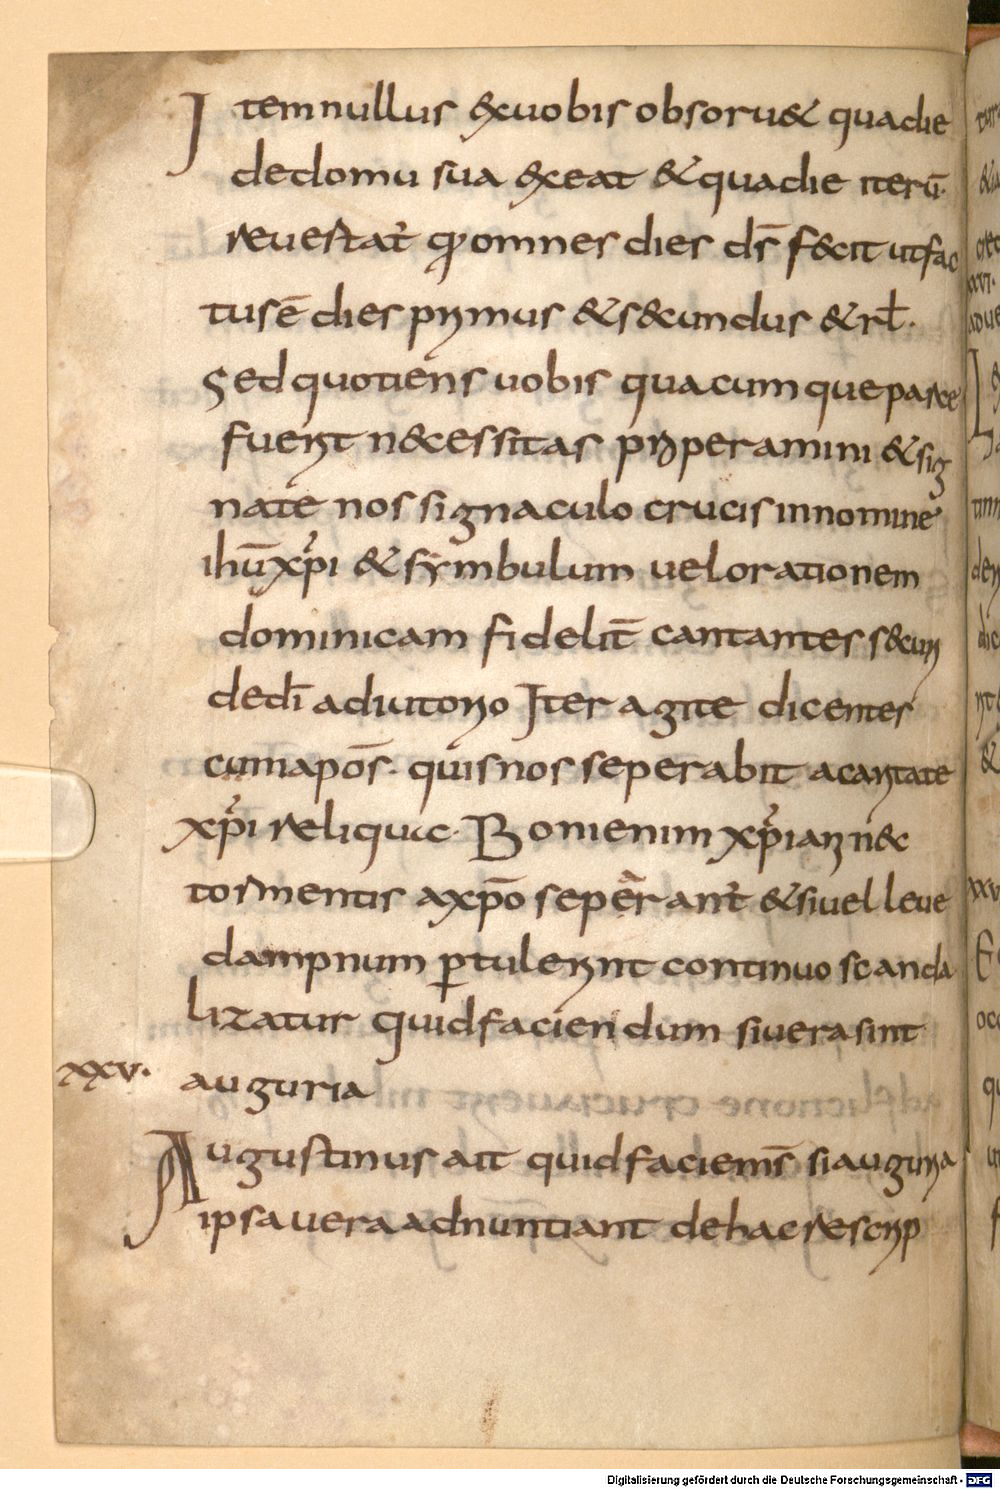 Item nullus ex uobis obseruet qua die
de domu sua exeat & qua die iterū
reuestat᷑ q̄ omnes dies ds̄ fecit ut fac
tus ē dies primus & secundus & rł.
Sed quotiens uobis quacumque parte
fuerit necessitas properamini & sig
nate nos signaculo crucis in nomine
ihū xp̄i & symbulum uel orationem
dominicam fidelit̄ cantantes secun
de dī adiutorio Iter agite dicentes
cum apōs. quis nos seperabit a caritate
xp̄i reliquic. Boni enim xp̄iani nec
tormentis a xp̄o seperant᷑ & si uel leue
dampnum ꝑtulerint continuo scanda
lizatur quid faciendum si uera sint
xxv. auguria
Augustinus ait quid faciems̄ si auguria
ipsa uera adnuntiant de hac re scrip
Digitalisierung gefördert durch die Deutsche Forschungsgemeinschaft - DFG